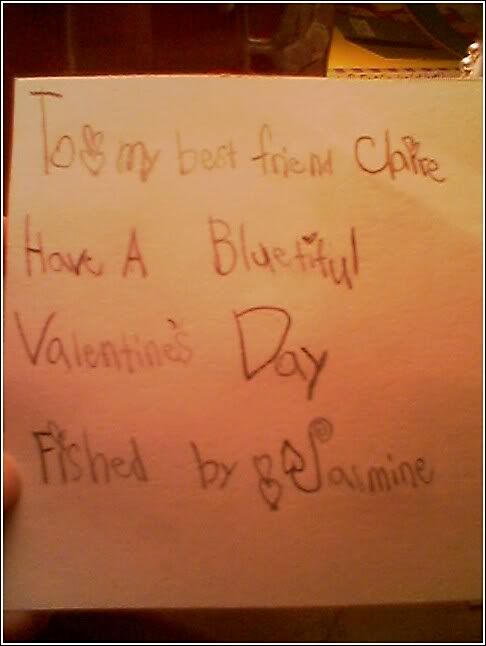 To my best friend Claire
Have A Bluetiful
Valentine's Day
Fished by Jasmine